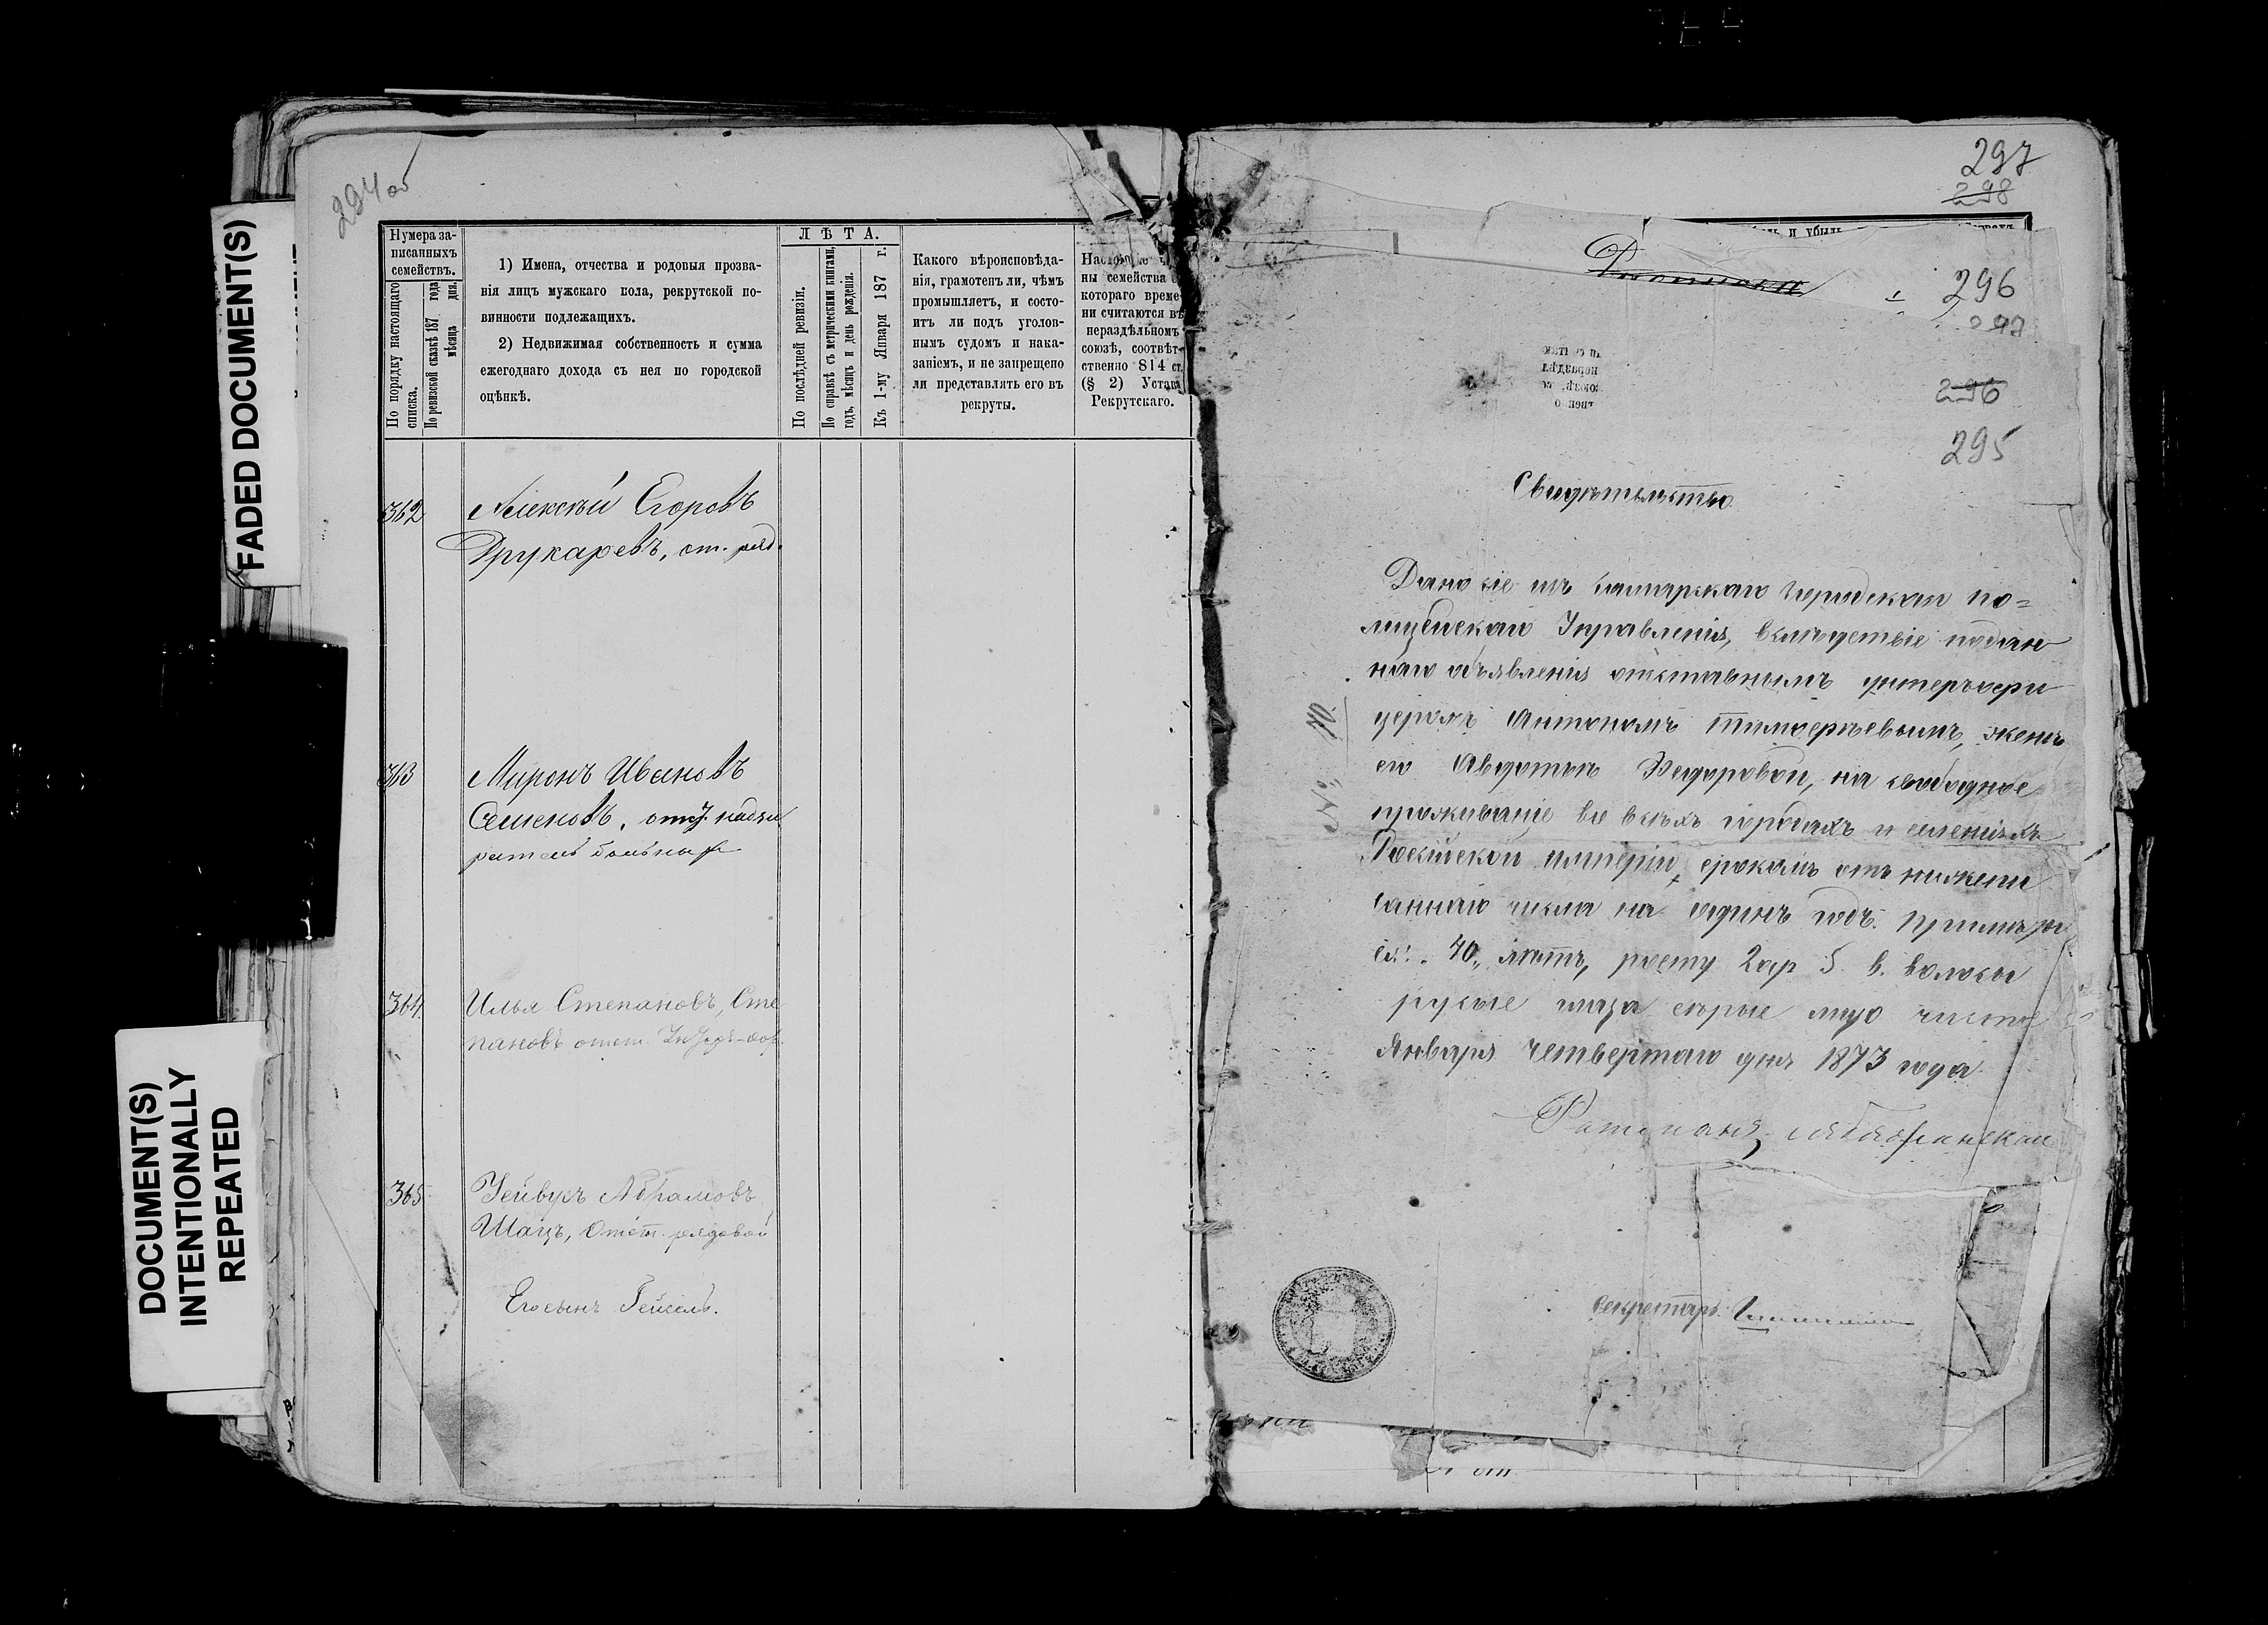 FADED DOCUMENT(S)
DOCUMENT(S)
INTENTIONALLY
REPEATED
294 об
Нумера за-
писанныхъ
семействъ.
По порядку настоящаго
списка.
По ревизской сказкѣ 187 года
мѣсяца дня.
1) Имена, отчества и родовыя прозва-
нія лицъ мужскаго пола, рекрутской по-
винности подлежащихъ.
2) Недвижимая собственность и сумма
ежегоднаго дохода съ нея по городской
оцѣнкѣ.
ЛѢТА.
По послѣдней ревизіи.
По справкѣ съ метрическими книгами,
годъ, мѣсяцъ и день рожденія.
Къ 1-му Января 187 г.
Какого вѣроисповѣда-
нія, грамотенъ ли, чѣмъ
промышляетъ, и состо-
итъ ли подъ уголов-
нымъ судомъ и нака-
заніемъ, и не запрещено
ли представлять его въ
рекруты.
ны семейства
котораго време-
ни считаются въ
нераздѣльномъ
союзѣ, соотвѣт-
ственно 814 ст.
(§ 2) Устава
Рекрутскаго.
362 Алексѣй Егоровъ
Друкаревъ, от. ряд.
363 Миронъ Ивановъ
Семеновъ, надзи
ратель больныхъ
364 Илья Степановъ, Сте
пановъ отст.
365 Абрамовъ
Шацъ, Отст. рядовой
Его сынъ Гейсель.
297
298
и убыль
296
297
296
295
Свидѣтельство
Дано сіе изъ городскаго по=
лицейскаго Управленія, вслѣдствіе подан
наго объявленія отставнымъ унтеръофи
церомъ Антономъ Тимоѳеевымъ, женѣ
его Авдотьи Федоровой, на свободное
проживаніе во всѣхъ городахъ и селеніяхъ
Россійской имперіи, срокомъ отъ нижепи
саннаго числа на одинъ годъ. Примѣты
ея: 40 лѣтъ, росту 2 ар 5 в. волосы
русые глаза сѣрые лицо чистое
Января четвертаго дня 1873 года
№ 70
Секретарь